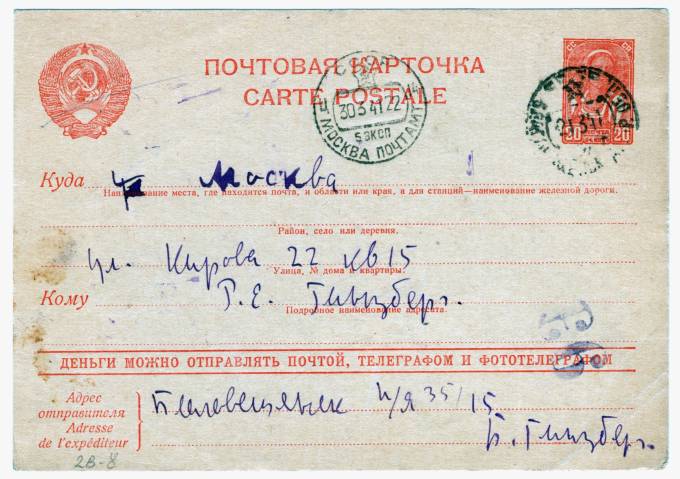 ПОЧТОВАЯ КАРТОЧКА
CARTE POSTALE
СССР
30 3 41 22
ЭКСП
МОСКВА ПОЧТАМТ
30 20
Куда Москва
Наименование места, где находится почта, и области или края, а для станций—наименование железной дороги.
Район, село или деревня.
ул. Кирова 22 кв 15
Улица, № дома и квартиры.
Кому Р. Е. Гинзберг.
Подробное наименование адресата.
ДЕНЬГИ МОЖНО ОТПРАВЛЯТЬ ПОЧТОЙ, ТЕЛЕГРАФОМ И ФОТОТЕЛЕГРАФОМ
Адрес
отправителя
Adresse
de l'expéditeur
п/я 35/15
Б. Гинзберг.
2В-8